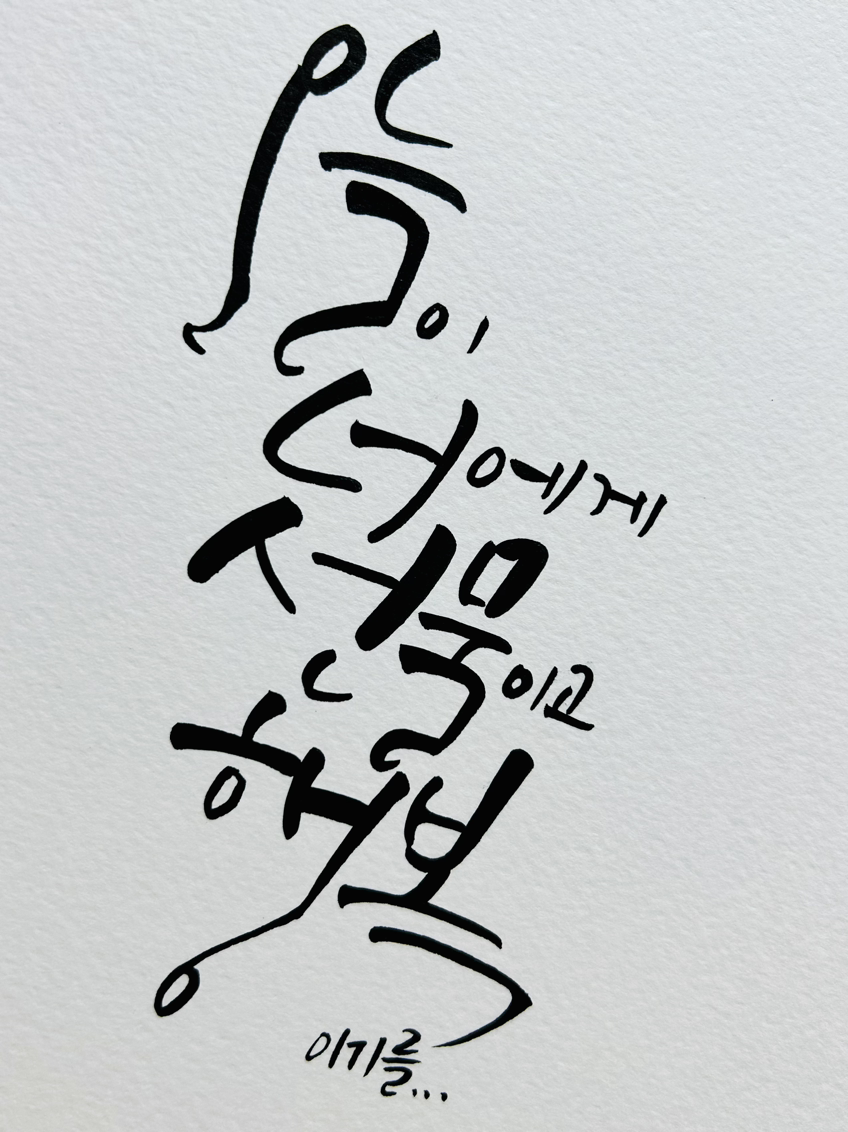 오늘이
너에게
선물이고
행복
이기를...